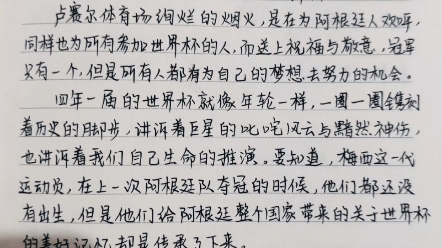 卢赛尔体育场绚烂的烟火，是在为阿根廷人欢呼，
同样也为所有参加世界杯的人，而送上祝福与敬意，冠军
只有一个，但是所有人都有为自己的梦想去努力的机会。
四年一届的世界杯就像年轮一样，一圈一圈镌刻
着历史的脚步，讲述着巨星的叱咤风云与黯然神伤，
也讲述着我们自己生命的推演。要知道，梅西这一代
运动员，在上一次阿根廷队夺冠的时候，他们都还没
有出生，但是他们给阿根廷整个国家带来的关于世界杯
的美好记忆却是传承了下来。